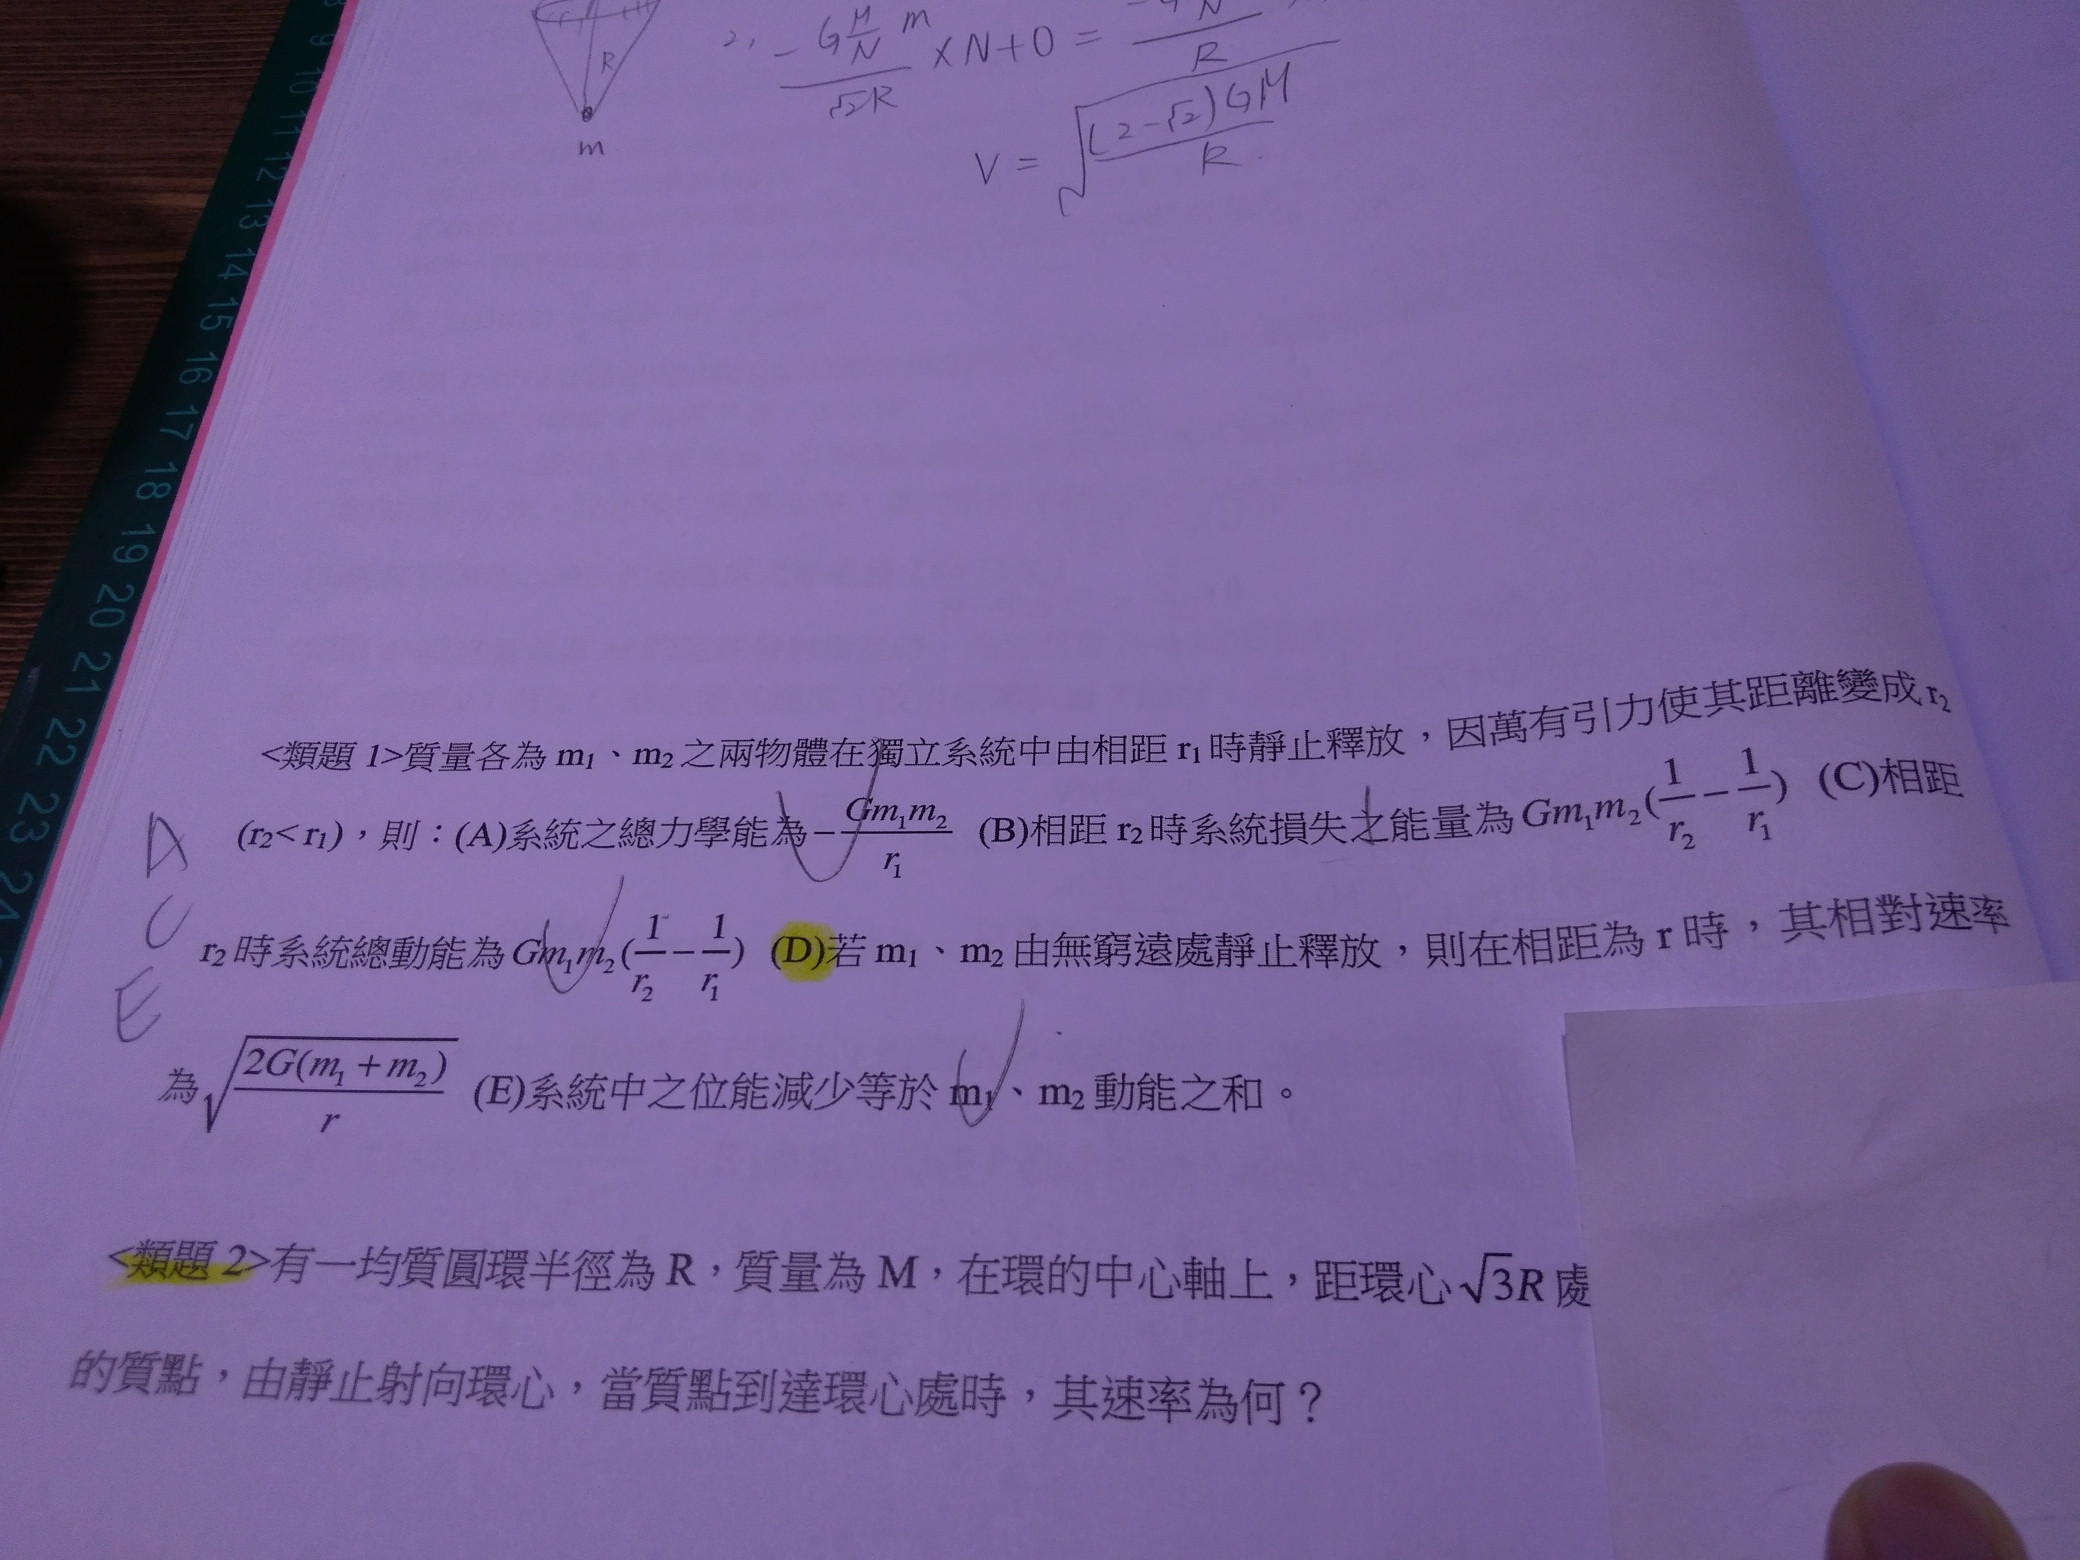 8
9
10
11
12
13
14
15
16
17
18
19
20
21
22
23
24
R
m
2. -G M/N m / √2R × N + 0 = / R
V = √((2-√2)GM / R)
<類題 1>質量各為 m₁、m₂之兩物體在獨立系統中由相距 r₁時靜止釋放，因萬有引力使其距離變成 r₂
(r₂< r₁)，則：(A)系統之總力學能為 -Gm₁m₂/r₁ (B)相距 r₂時系統損失之能量為 Gm₁m₂(1/r₂ - 1/r₁) (C)相距
r₂時系統總動能為 Gm₁m₂(1/r₂ - 1/r₁) (D)若 m₁、m₂由無窮遠處靜止釋放，則在相距為 r 時，其相對速率
為 √(2G(m₁+m₂)/r) (E)系統中之位能減少等於 m₁、m₂動能之和。
A
C
E
<類題 2>有一均質圓環半徑為 R，質量為 M，在環的中心軸上，距環心√3R 處
的質點，由靜止射向環心，當質點到達環心處時，其速率為何？